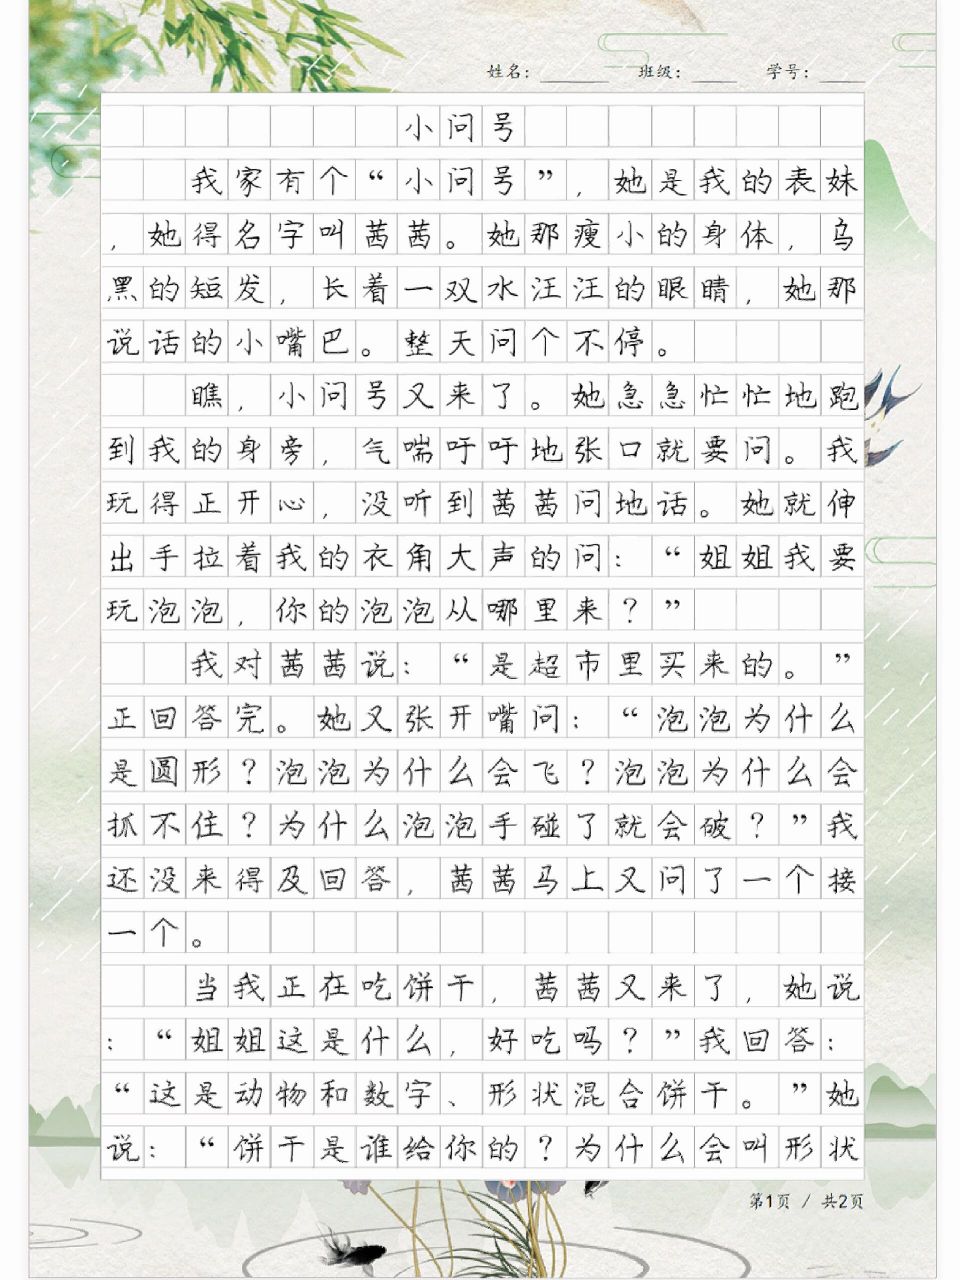 姓名：______ 班级：____ 学号：____
小问号
我家有个“小问号”，她是我的表妹
，她得名字叫茜茜。她那瘦小的身体，乌
黑的短发，长着一双水汪汪的眼睛，她那
说话的小嘴巴。整天问个不停。
瞧，小问号又来了。她急急忙忙地跑
到我的身旁，气喘吁吁地张口就要问。我
玩得正开心，没听到茜茜问地话。她就伸
出手拉着我的衣角大声的问：“姐姐我要
玩泡泡，你的泡泡从哪里来？”
我对茜茜说：“是超市里买来的。”
正回答完。她又张开嘴问：“泡泡为什么
是圆形？泡泡为什么会飞？泡泡为什么会
抓不住？为什么泡泡手碰了就会破？”我
还没来得及回答，茜茜马上又问了一个接
一个。
当我正在吃饼干，茜茜又来了，她说
：“姐姐这是什么，好吃吗？”我回答：
“这是动物和数字、形状混合饼干。”她
说：“饼干是谁给你的？为什么会叫形状
第1页 / 共2页